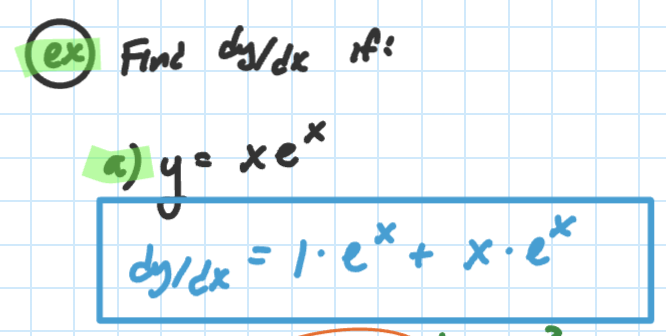 ex Find dy/dx if:
a) y = xe^x
dy/dx = 1 · e^x + x · e^x